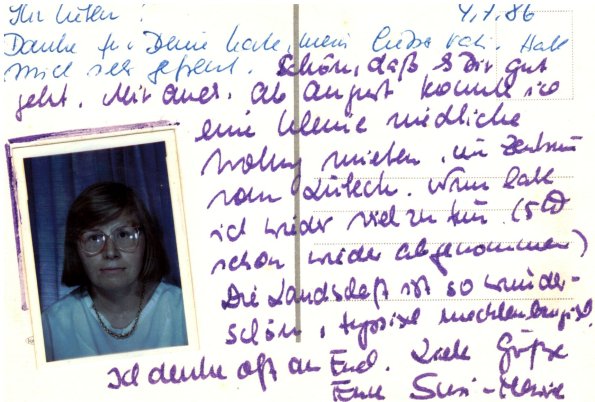 Ihr Lieben! 4.7.86
Danke für Deine Karte, mein lieber. Hat
mich sehr gefreut. Schön, daß es Dir gut
geht. Mir auch. Ab August konnte ich
eine kleine niedliche
Wohng mieten, im Zentrum
von Lübeck. Nun hab
ich wieder viel zu tun (5
schon wieder abgenommen)
Die Landschaft ist so wunder-
schön, typisch mecklenburgisch.
Ich denke oft an Euch. Liebe Grüße
Eure Susi-